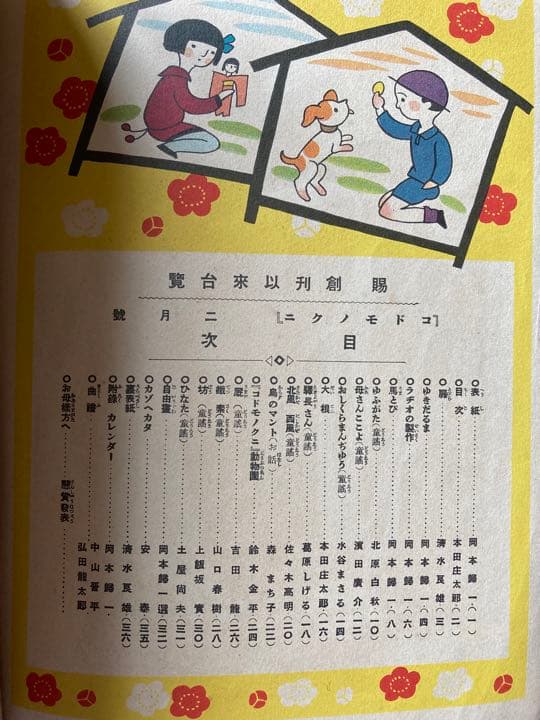 賜創刊以來台覽
『コドモノクニ』 二月號
目次
○表紙……岡本歸一(一)
○目次……本田庄太郎(二)
○扉……清水良雄(三)
○ゆきだるま……岡本歸一(四)
○ラヂオの製作……岡本歸一(六)
○馬とび……岡本歸一(八)
○ゆふがた(童謠)……北原白秋(一〇)
○母さんここよ(童謠)……濱田廣介(一二)
○おしくらまんぢゆう(童謠)……水谷まさる(一四)
○大根……本田庄太郎(一六)
○驛長さん(童謠)……葛原しげる(一八)
○北風 西風(童謠)……佐々木高明(二〇)
○鳥のマント(お話)……森まち子(二二)
『コドモノクニ』動物園……鈴木金平(二四)
○(童謠)……吉田龍(二六)
○鐵索(童謠)……山口春樹(二八)
○坊(童謠)……上飯坂實(三〇)
○ひなた(童謠)……土屋尚夫(三一)
○自由畫……岡本歸一選(三二)
○カゾヘカタ……安泰(三五)
○裏表紙……清水良雄(三六)
○附錄 カレンダー……岡本歸一
○曲譜……中山晋平
弘田龍太郎
○お母樣方へ……懸賞發表